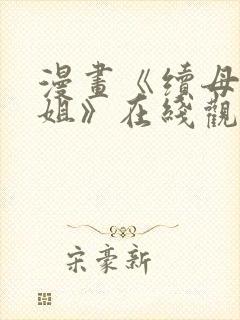 漫畫《續母
姐》在綫觀
宋豪新